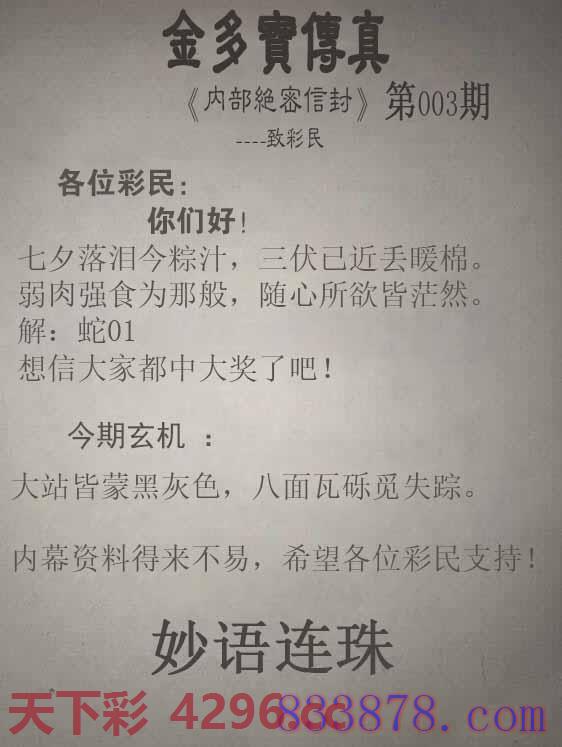 金多寶傳真
《内部絶密信封》第003期
----致彩民
各位彩民:
你们好!
七夕落泪今粽汁，三伏已近丢暖棉。
弱肉强食为那般，随心所欲皆茫然。
解：蛇01
想信大家都中大奖了吧!
今期玄机 ：
大站皆蒙黑灰色，八面瓦砾觅失踪。
内幕资料得来不易，希望各位彩民支持!
妙语连珠
天下彩 4296.cc 883878.com